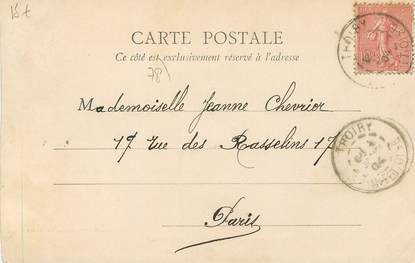 15 t
CARTE POSTALE
Ce côté est exclusivement réservé à l'adresse
78
Mademoiselle Jeanne Chevrier
17 rue des Rasselins 17
Paris
THOIRY
THOIRY